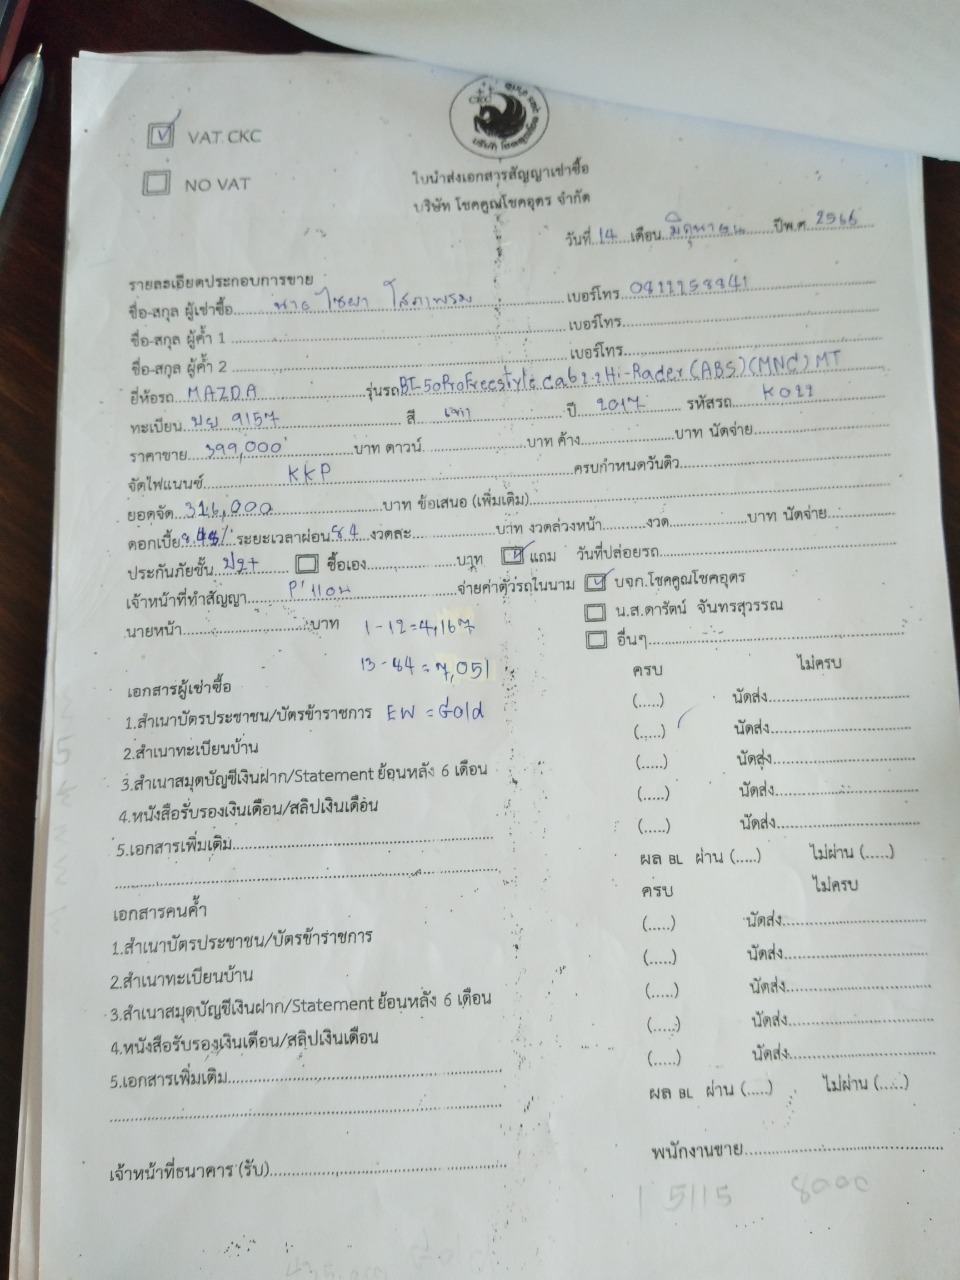 VAT CKC
NO VAT
ใบนำส่งเอกสารสัญญาเช่าซื้อ
บริษัท โชคคูณโชคอุดร จำกัด
วันที่ 14 เดือน มิถุนายน ปีพ.ศ. 2566
รายละเอียดประกอบการขาย
ชื่อ-สกุล ผู้เช่าซื้อ นาย ไชยา โสภาพรม เบอร์โทร
ชื่อ-สกุล ผู้ค้ำ 1 เบอร์โทร
ชื่อ-สกุล ผู้ค้ำ 2 เบอร์โทร
ยี่ห้อรถ MAZDA รุ่นรถ BT-50 Pro Freestyle Cab 2.2 Hi-Rader (ABS) (MNC) MT
ทะเบียน 9157 สี เทา ปี 2017 รหัสรถ K022
ราคาขาย 399,000 บาท ดาวน์ บาท ค้าง บาท นัดจ่าย
จัดไฟแนนซ์ KKP ครบกำหนดวันดิว
ยอดจัด บาท ข้อเสนอ (เพิ่มเติม)
ดอกเบี้ย ระยะเวลาผ่อน 84 งวดละ บาท งวดล่วงหน้า งวด บาท นัดจ่าย
ประกันภัยชั้น ป2+ ซื้อเอง บาท แถม วันที่ปล่อยรถ
เจ้าหน้าที่ทำสัญญา P'แอน จ่ายค่าตัวรถในนาม บจก.โชคคูณโชคอุดร
น.ส.ดารัตน์ จันทรสุวรรณ
นายหน้า บาท 1-12=4,167
อื่นๆ
13-84=7,051
เอกสารผู้เช่าซื้อ ครบ ไม่ครบ
1.สำเนาบัตรประชาชน/บัตรข้าราชการ EW = Gold (.....) นัดส่ง
2.สำเนาทะเบียนบ้าน (.....) นัดส่ง
3.สำเนาสมุดบัญชีเงินฝาก/Statement ย้อนหลัง 6 เดือน (.....) นัดส่ง
4.หนังสือรับรองเงินเดือน/สลิปเงินเดือน (.....) นัดส่ง
5.เอกสารเพิ่มเติม (.....) นัดส่ง
ผล BL ผ่าน (.....) ไม่ผ่าน (.....)
เอกสารคนค้ำ ครบ ไม่ครบ
1.สำเนาบัตรประชาชน/บัตรข้าราชการ (.....) นัดส่ง
2.สำเนาทะเบียนบ้าน (.....) นัดส่ง
3.สำเนาสมุดบัญชีเงินฝาก/Statement ย้อนหลัง 6 เดือน (.....) นัดส่ง
4.หนังสือรับรองเงินเดือน/สลิปเงินเดือน (.....) นัดส่ง
5.เอกสารเพิ่มเติม (.....) นัดส่ง
ผล BL ผ่าน (.....) ไม่ผ่าน (.....)
เจ้าหน้าที่ธนาคาร (รับ) พนักงานขาย